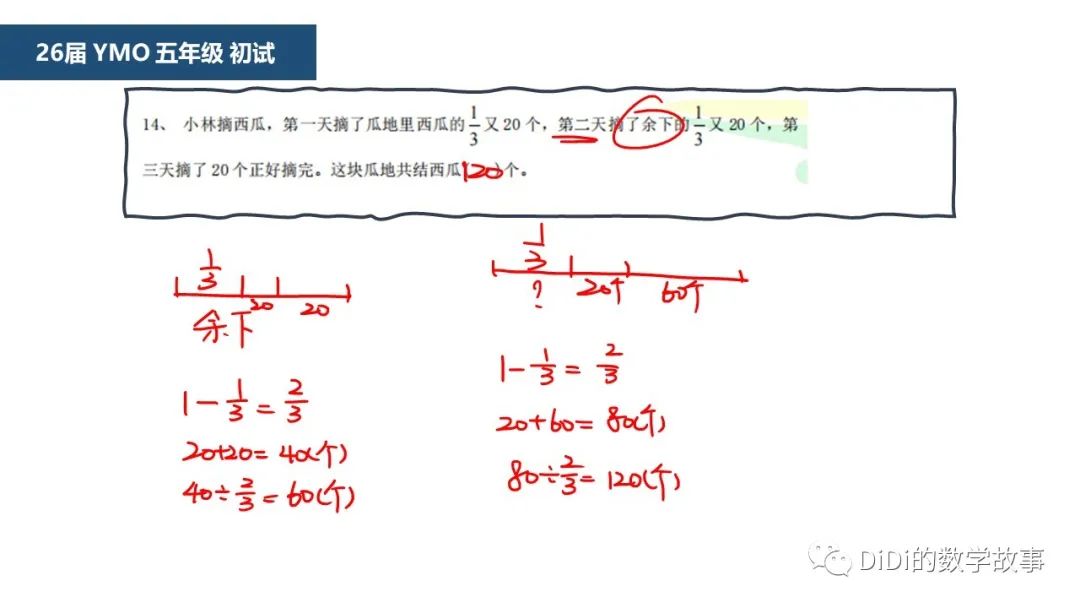 26届 YMO 五年级 初试
14、 小林摘西瓜，第一天摘了瓜地里西瓜的1/3又20个，第二天摘了余下的1/3又20个，第
三天摘了20个正好摘完。这块瓜地共结西瓜(120)个。
1/3
20 20
余下
1-1/3=2/3
20+20=40(个)
40÷2/3=60(个)
1/3
? 20个 60个
1-1/3=2/3
20+60=80(个)
80÷2/3=120(个)
DiDi的数学故事